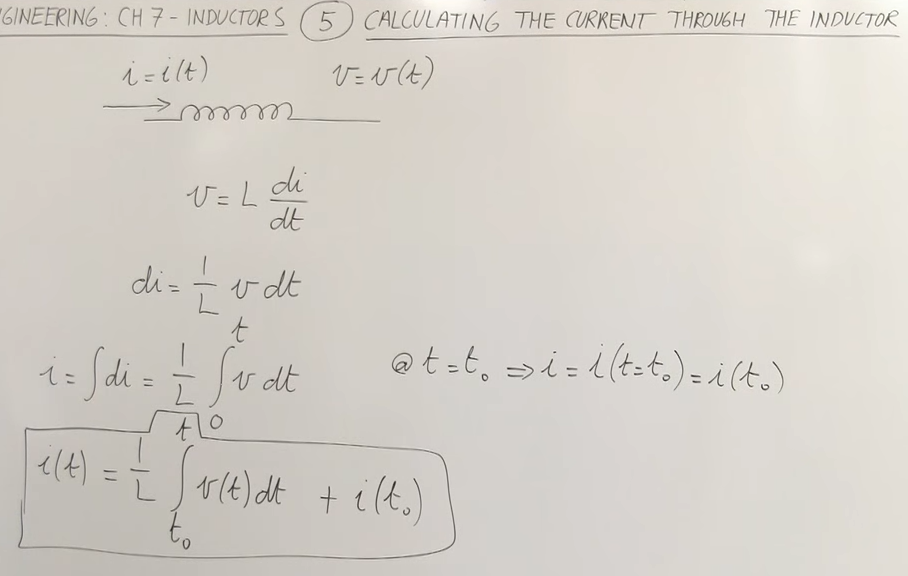 GINEERING: CH 7 - INDUCTORS (5) CALCULATING THE CURRENT THROUGH THE INDUCTOR
i = i(t) v = v(t)
v = L di/dt
di = 1/L v dt
i = ∫di = 1/L ∫₀ᵗ v dt @ t = t₀ ⇒ i = i(t=t₀) = i(t₀)
i(t) = 1/L ∫_{t₀}^{t} v(t) dt + i(t₀)